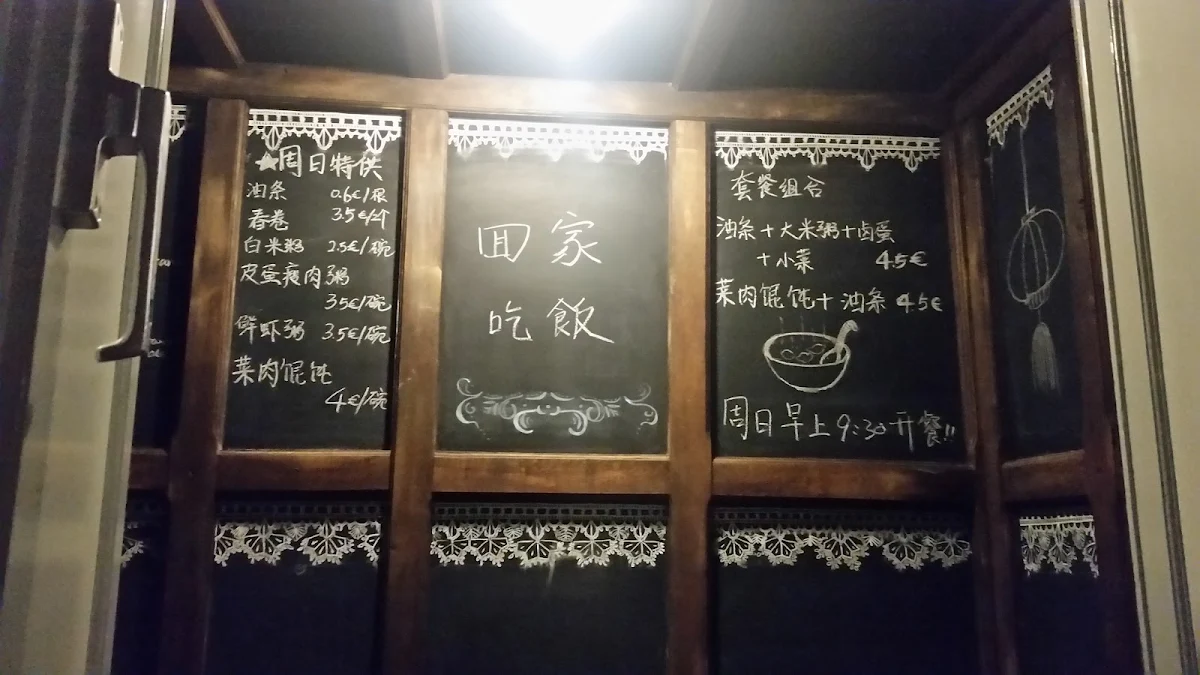 ★周日特供
油条 0.6€/根
春卷 3.5€/个
白米粥 2.5€/碗
皮蛋瘦肉粥
3.5€/碗
鲜虾粥 3.5€/碗
菜肉馄饨
4€/碗
回家
吃飯
套餐组合
油条+大米粥+卤蛋
+小菜 4.5€
菜肉馄饨+油条 4.5€
周日早上9:30开餐!!